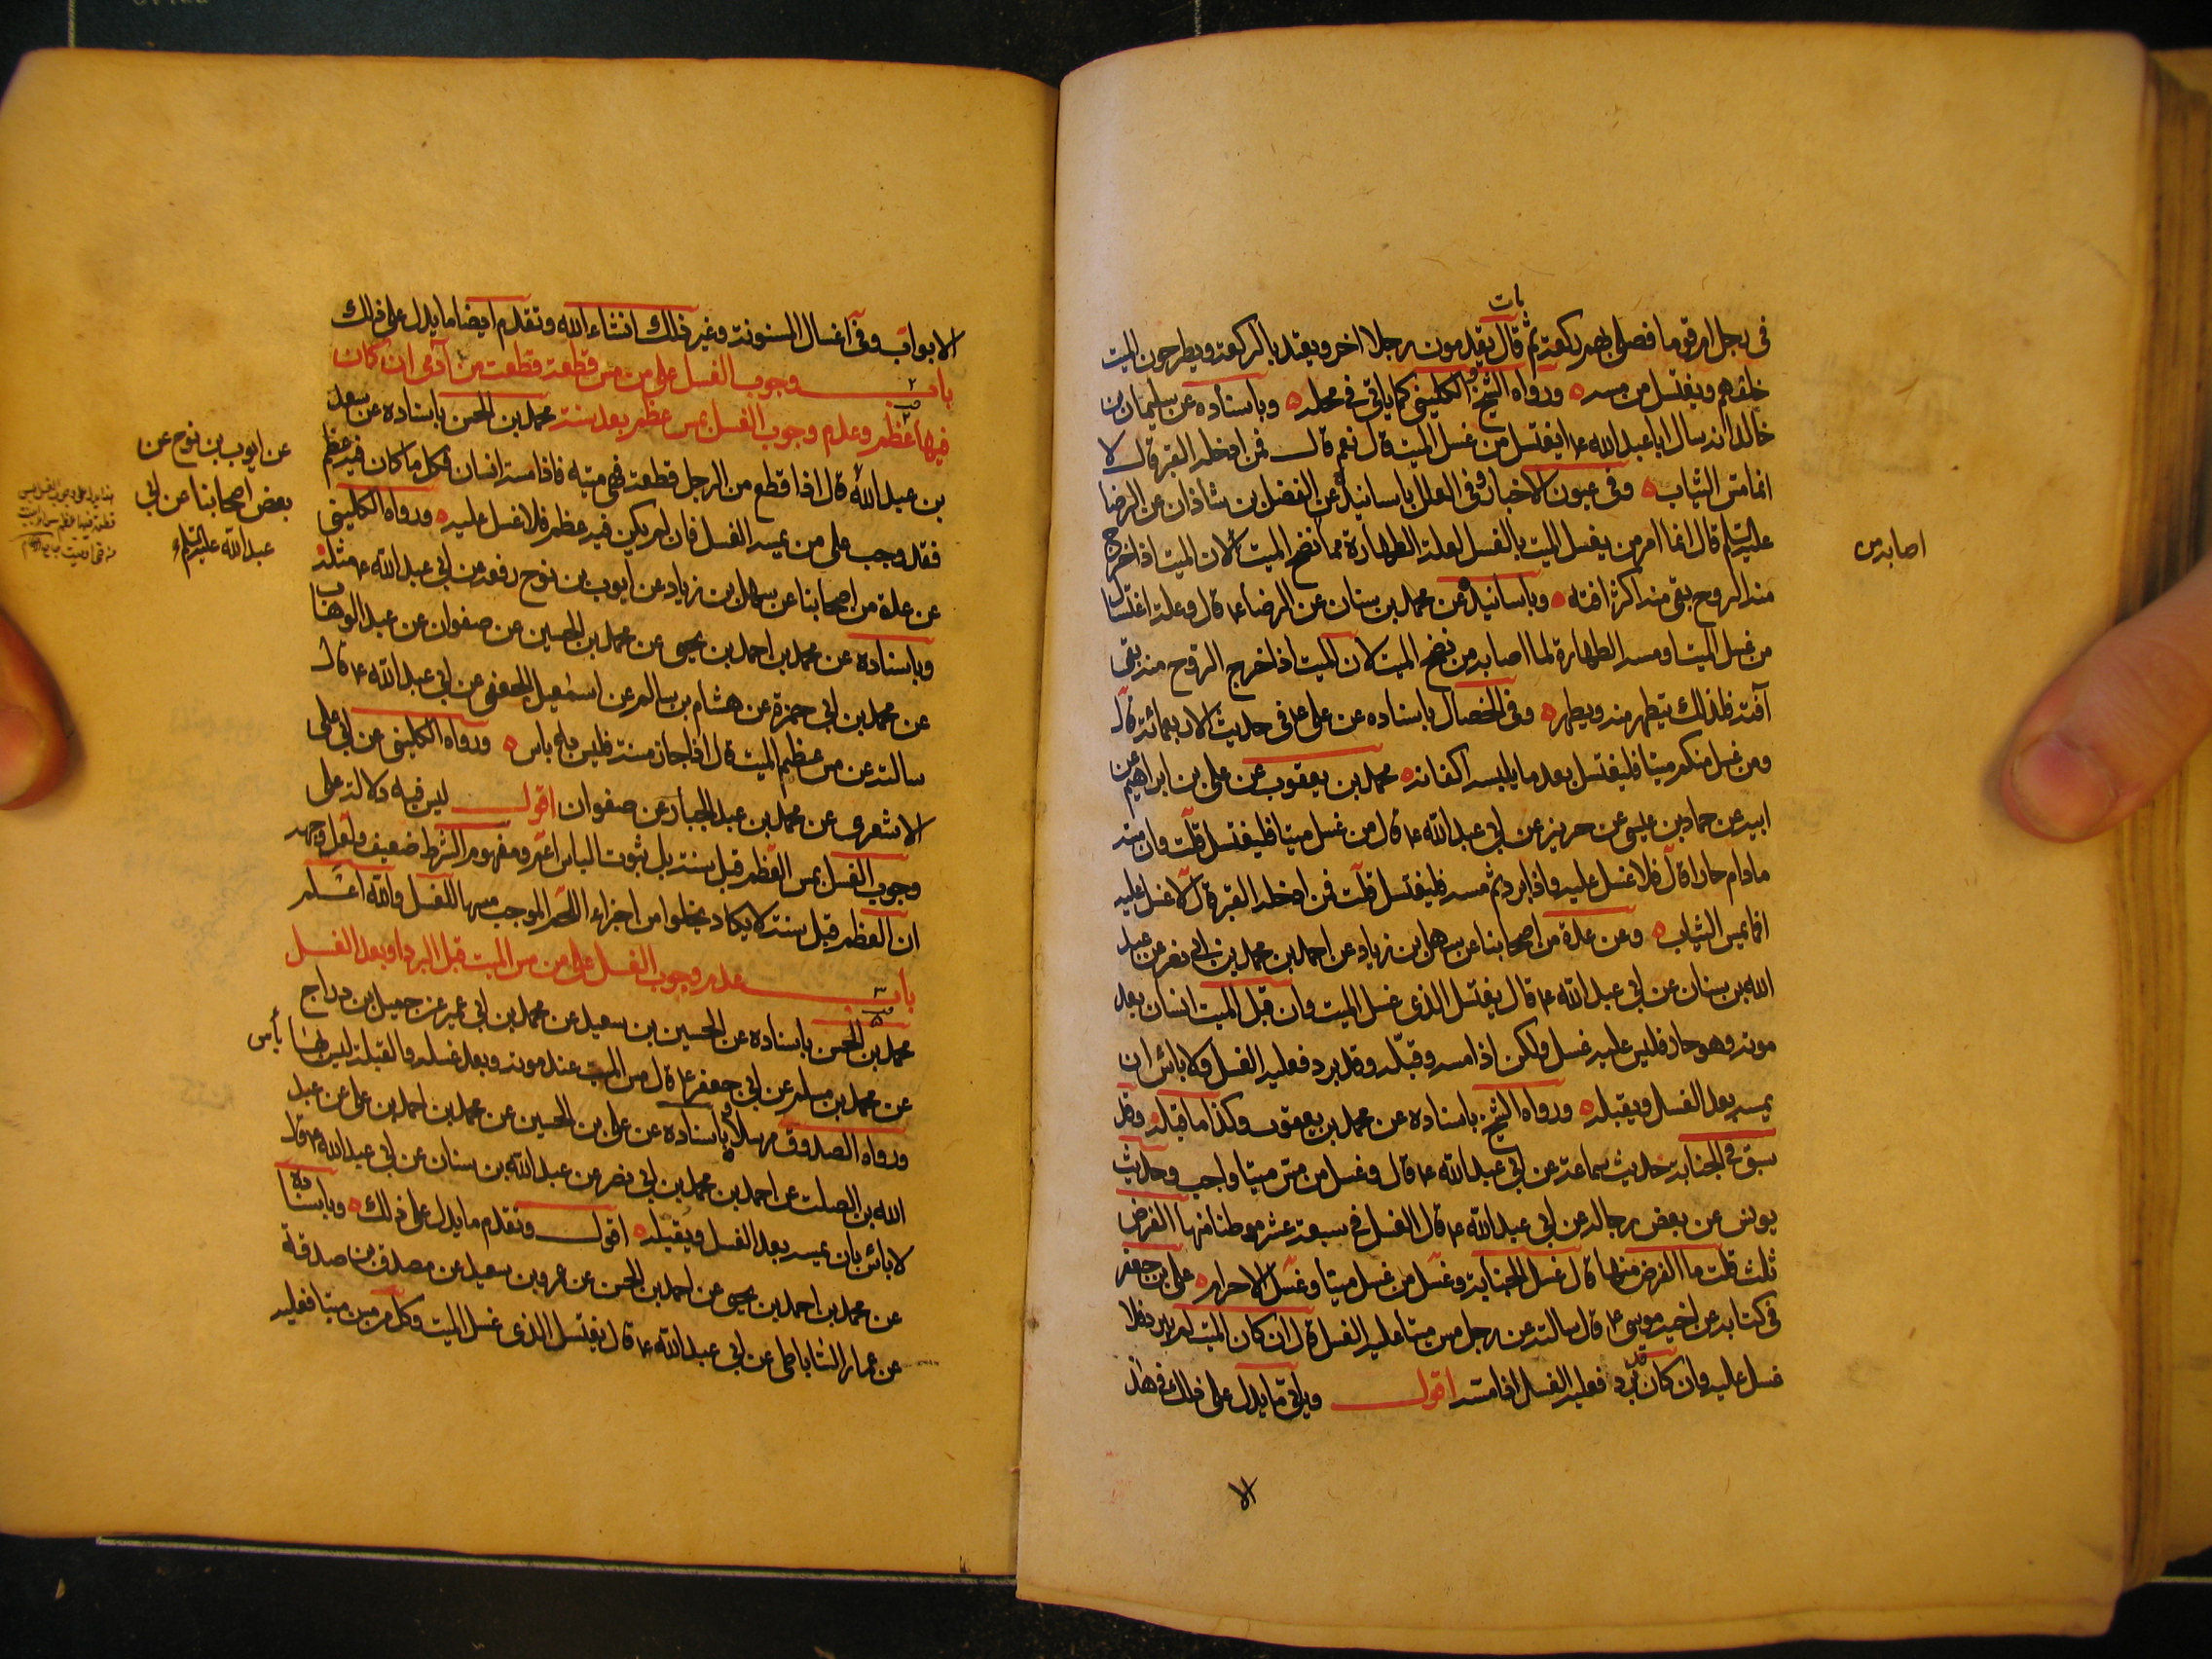 مات
في رجل ام قوما فصلى بهم ركعة ثم قال يقدمون رجلا اخر ويعتد بالركعة ويطرحون الميت
خلفهم ويغتسل من مسه ورواه الشيخ والكليني كما ياتي في محله وباسناده عن سليمان بن
خالد انه سال ابا عبد الله ع ايغتسل من غسل الميت قال نعم قال فمن ادخله القبر قال لا
انما مس الثياب وفي عيون الاخبار وفي العلل باسانيده عن الفضل بن شاذان عن الرضا
عليه السلم قال انما امر من يغسل الميت بالغسل لعلة الطهارة مما نضح الميت لان الميت اذا خرج
منه الروح بقى منه اكثر افته وباسانيده عن محمد بن سنان عن الرضا ع قال وعلة اغتسال
من غسل الميت او مسه الطهارة لما اصابه من نضح الميت لان الميت اذا خرج الروح منه بقى
آفته فلذلك يتطهر منه ويطهر وفي الخصال باسناده عن علي ع في حديث الاربعمائة قال
ومن غسل منكم ميتا فليغتسل بعد ما يلبسه اكفانه محمد بن يعقوب عن علي بن ابراهيم عن
ابيه عن حماد بن عيسى عن حريز عن ابي عبد الله ع قال من غسل ميتا فليغتسل قلت وان مسه
مادام حارا قال فلا غسل عليه واذا برد ثم مسه فليغتسل قلت فمن ادخله القبر قال لا غسل عليه
انما يمس الثياب وعن عدة من اصحابنا عن سهل بن زياد عن احمد بن محمد بن ابي نصر عن عبد
الله بن سنان عن ابي عبد الله ع قال يغتسل الذي غسل الميت وان قبل الميت انسان بعد
موته وهو حار فليس عليه غسل ولكن اذا مسه وقبله وقد برد فعليه الغسل ولا باس ان
يمسه بعد الغسل ويقبله ورواه الشيخ باسناده عن محمد بن يعقوب وكذا ما قبله وقد
سبق في الجنابة حديث سماعة عن ابي عبد الله ع قال وغسل من مس ميتا واجب وحديث
يونس عن بعض رجاله عن ابي عبد الله ع قال الغسل في سبعة عشر موطنا منها الفرض
ثلث قلت ما الفرض منها قال غسل الجنابة وغسل من غسل ميتا وغسل الاحرام علي بن جعفر
في كتابه عن اخيه موسى ع قال سالته عن رجل مس ميتا عليه الغسل قال ان كان الميت لم يبرد فلا
غسل عليه وان كان قد برد فعليه الغسل اذا مسه اقول وياتي ما يدل على ذلك في هذه
الا
اصابه من
الابواب وفي اغسال المسنونة وغير ذلك انشاء الله وتقدم ايضا ما يدل على ذلك
باب ٢ وجوب الغسل على من مس قطعة قطعت من آدمي ان كان
فيها عظم وعدم وجوب الغسل بمس عظم بعد سنة محمد بن الحسن باسناده عن سعد
بن عبد الله قال اذا قطع من الرجل قطعة فهي ميتة فاذا مسه انسان فكل ما كان فيه عظم
فقد وجب على من يمسه الغسل فان لم يكن فيه عظم فلا غسل عليه ورواه الكليني
عن عدة من اصحابنا عن سهل بن زياد عن ايوب بن نوح رفعه عن ابي عبد الله ع مثله
وباسناده عن محمد بن احمد بن يحيى عن محمد بن الحسين عن صفوان عن عبد الوهاب
عن محمد بن ابي حمزة عن هشام بن سالم عن اسمعيل الجعفي عن ابي عبد الله ع قال
سالته عن مس عظم الميت قال اذا جاز سنة فليس به باس ورواه الكليني عن ابي علي
الاشعري عن محمد بن عبد الجبار عن صفوان اقول ليس فيه دلالة على
وجوب الغسل بمس العظم قبل سنة بل ثبوت الباس اعم ومفهوم الشرط ضعيف ولعل وجهه
ان العظم قبل سنة لا يكاد يخلوا من اجزاء اللحم الموجب مسها للغسل والله اعلم
باب ٣ عدم وجوب الغسل على من مس الميت قبل البرد او بعد الغسل
محمد بن الحسن باسناده عن الحسين بن سعيد عن محمد بن ابي عمير عن جميل بن دراج
عن محمد بن مسلم عن ابي جعفر ع قال مس الميت عند موته وبعد غسله والقبلة ليس بها بأس
ورواه الصدوق مرسلا وباسناده عن علي بن الحسين عن محمد بن احمد بن علي عن عبد
الله بن الصلت عن احمد بن محمد بن ابي نصر عن عبد الله بن سنان عن ابي عبد الله ع قال
لا باس بان يمسه بعد الغسل ويقبله اقول وتقدم ما يدل على ذلك وباسناده
عن محمد بن احمد بن يحيى عن احمد بن الحسن عن عمرو بن سعيد عن مصدق بن صدقة
عن عمار الساباطي عن ابي عبد الله ع قال يغتسل الذي غسل الميت وكل من مس ميتا فعليه
عن ايوب بن نوح عن
بعض اصحابنا عن ابي
عبد الله عليه السلم